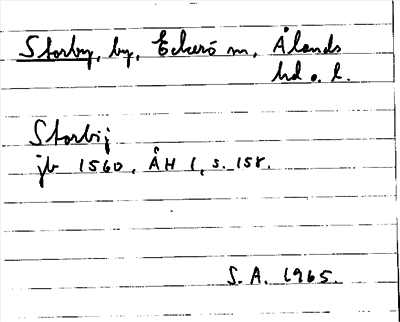 Storby, by, Eckerö sn, Ålands
hd o. l.
Storbij
jb 1560, ÅH 1, s. 158.
S. A. 1965.